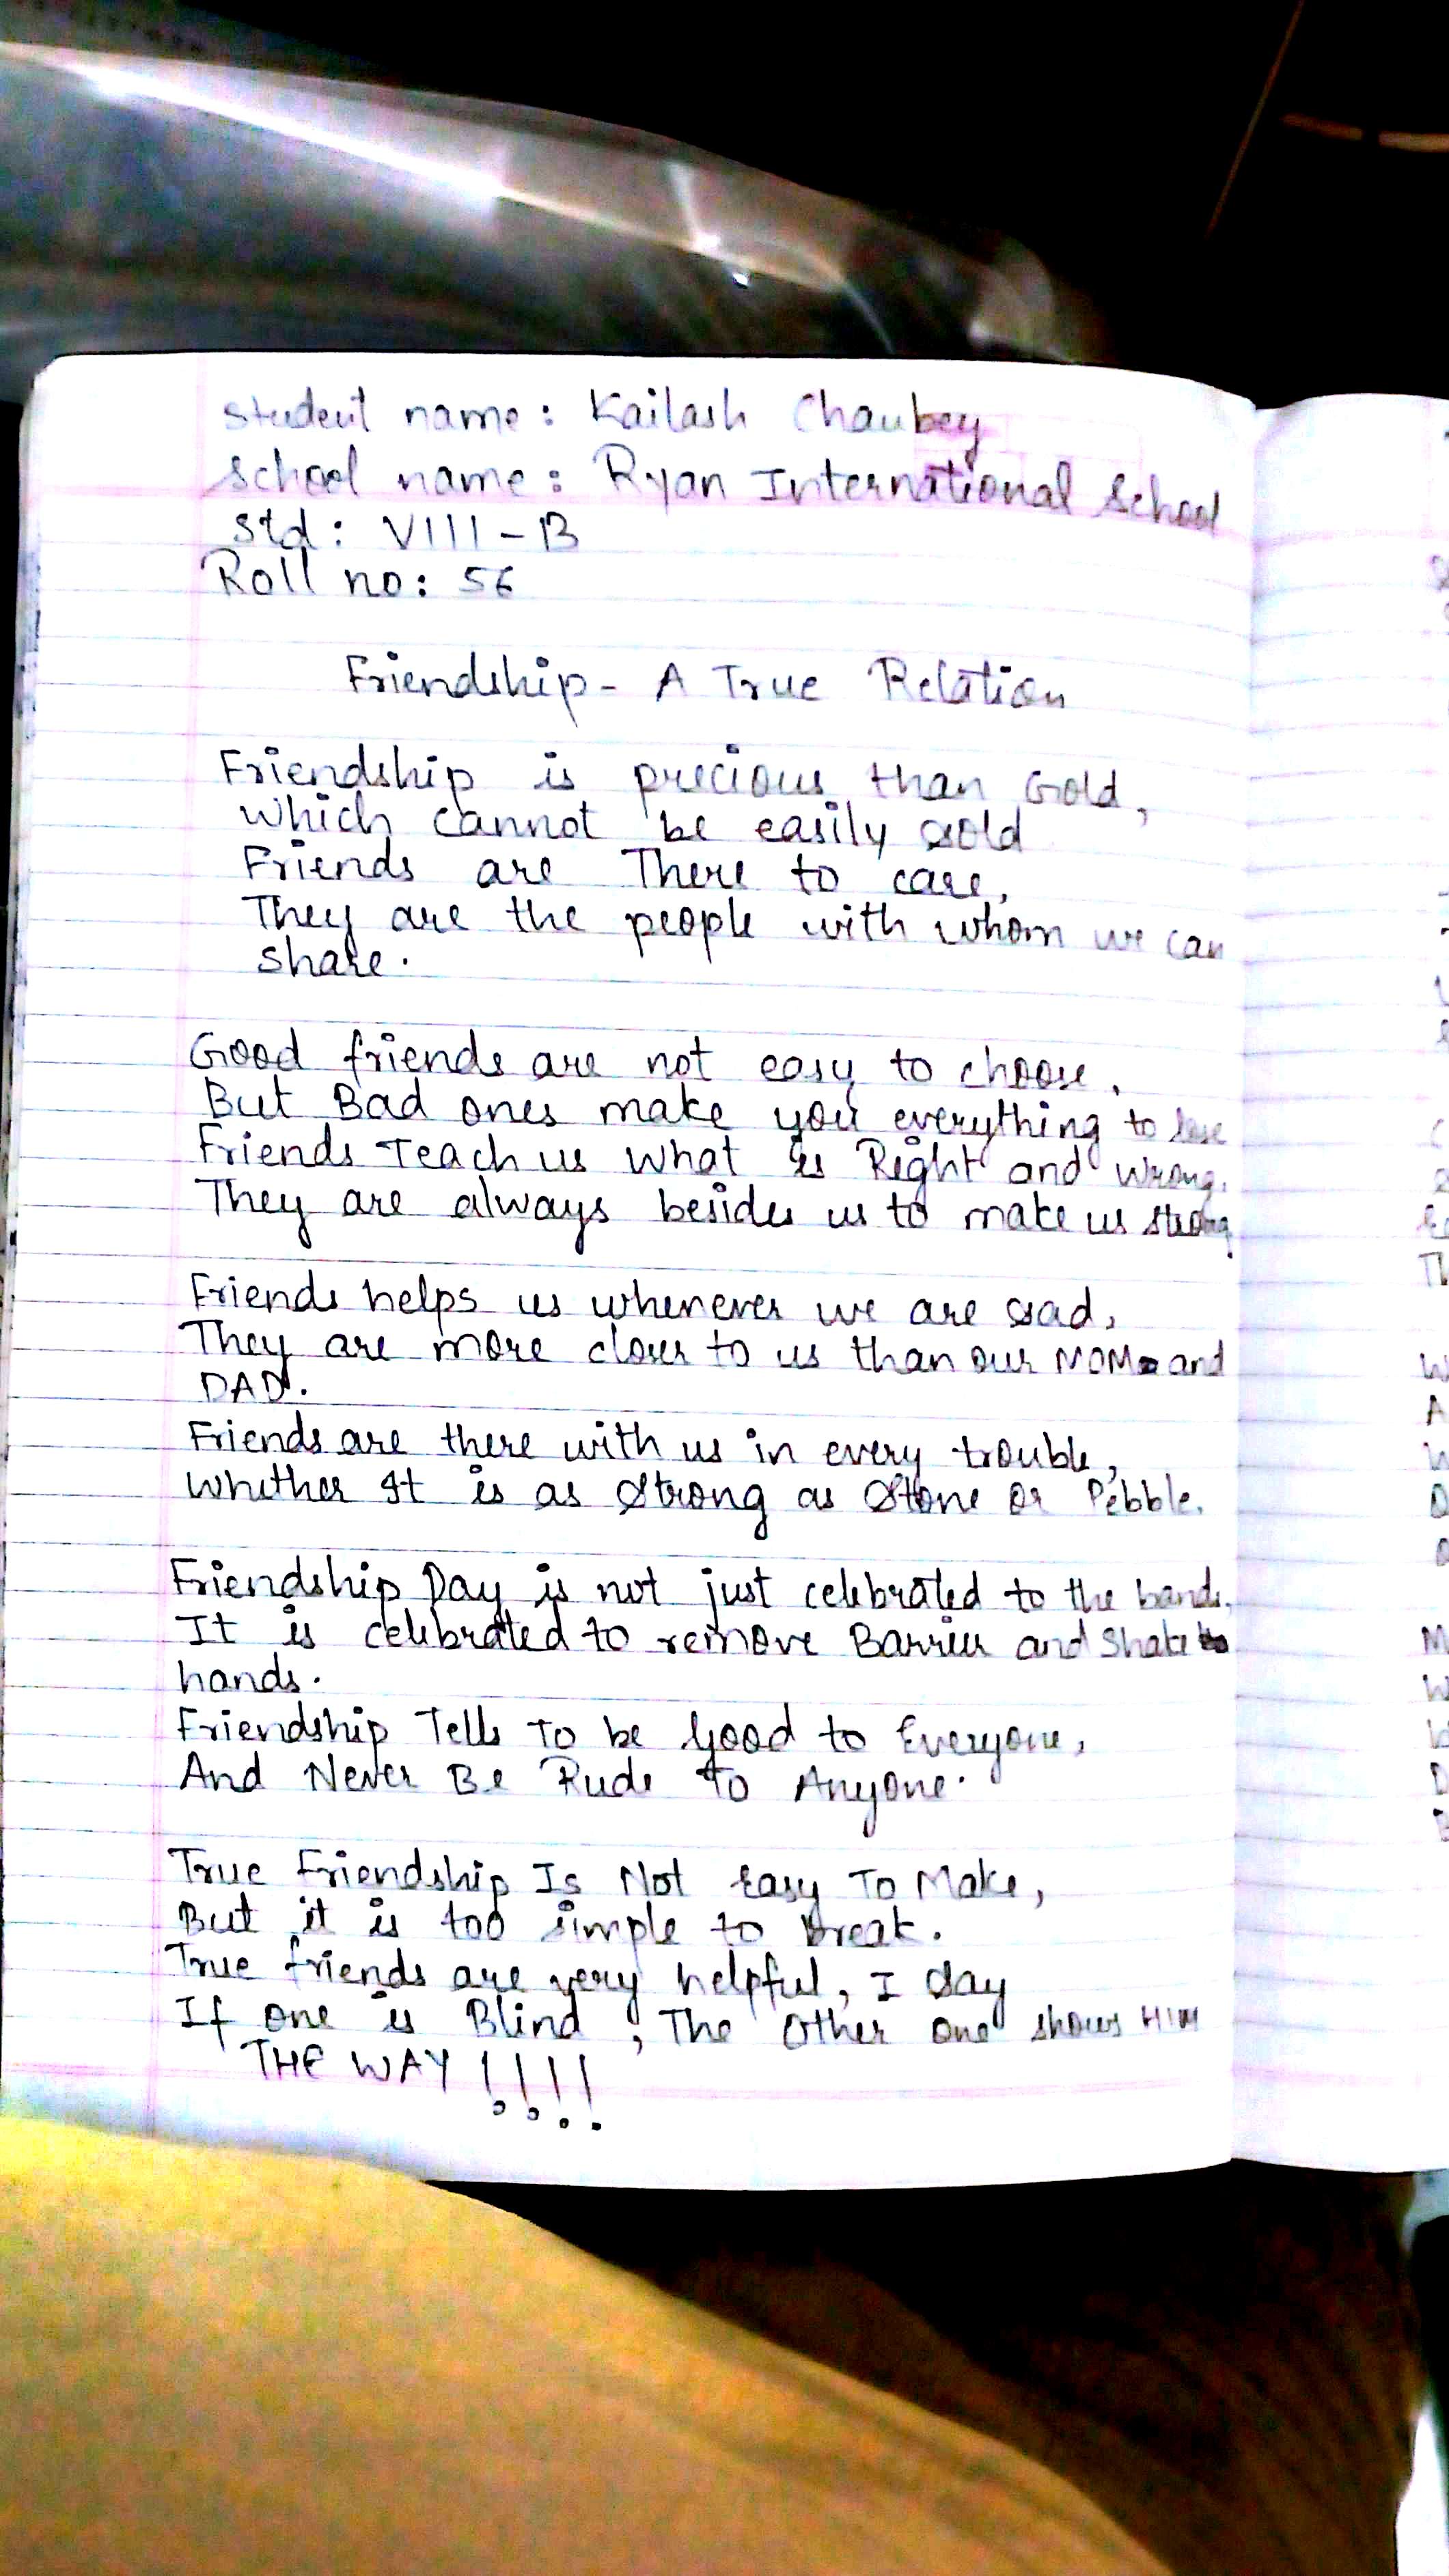 Student name: Kailash Chaubey
School name: Ryan International School
Std: VIII-B
Roll no: 56
Friendship- A True Relation
Friendship is precious than Gold,
which cannot be easily sold
Friends are There to care,
They are the people with whom we can
share.
Good friends are not easy to choose,
But Bad ones make you everything to lose
Friends Teach us what is Right and wrong.
They are always besides us to make us strong.
Friends helps us whenever we are sad,
They are more closer to us than our MOM and
DAD.
Friends are there with us in every trouble,
Whether It is as Strong as Stone or Pebble.
Friendship Day is not just celebrated to the bands.
It is celebrated to remove Barrier and Shake
hands.
Friendship Tells To be Good to Everyone,
And Never Be Rude To Anyone.
True Friendship Is Not Easy To Make,
But it is too simple to Break.
True friends are very helpful, I say
If one is Blind, The Other One shows HIM
THE WAY !!!!